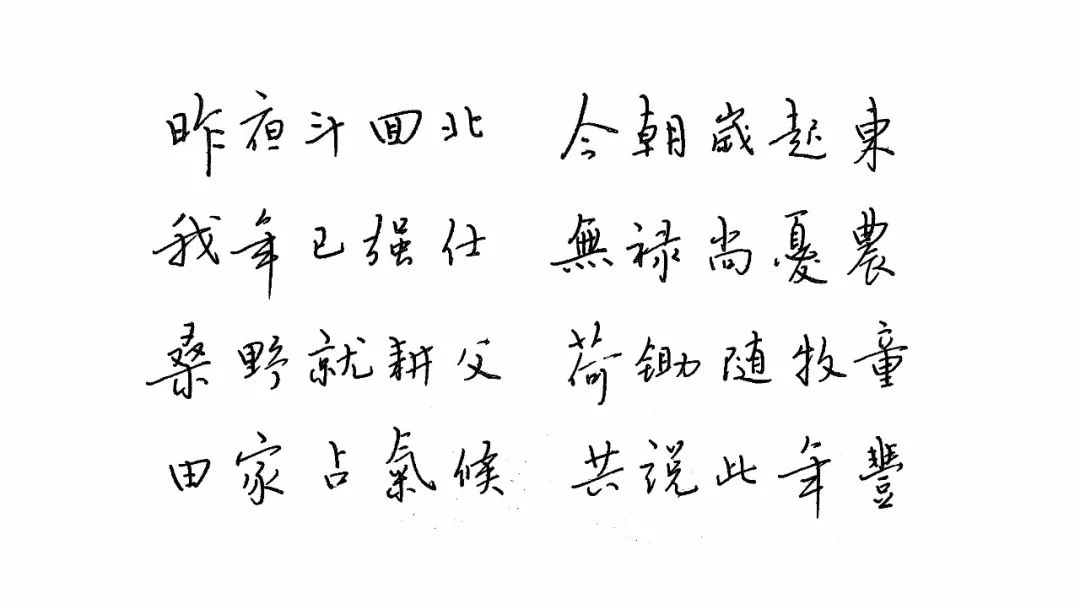 昨夜斗回北 今朝歲起東
我年已强仕 無禄尚憂農
桑野就耕父 荷鋤随牧童
田家占氣候 共説此年豐